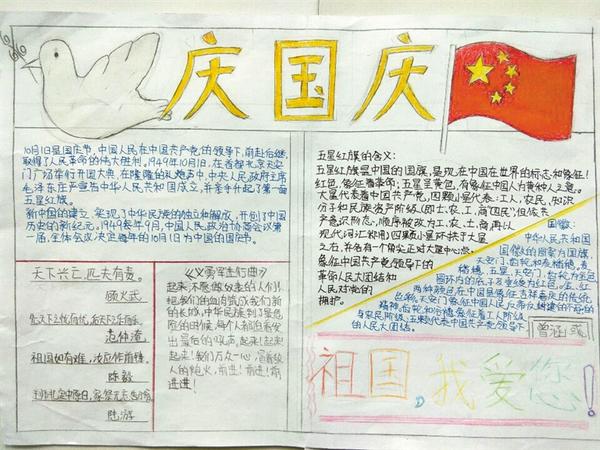 庆国庆
10月1日是国庆节,中国人民在中国共产党的领导下,前赴后继,
取得了人民革命的伟大胜利。1949年10月1日,在首都北京天安
门广场举行开国大典,在隆隆的礼炮声中,中央人民政府主席
毛泽东庄严宣告中华人民共和国成立,并亲手升起了第一面
五星红旗。
新中国的建立,实现了中华民族的独立和解放,开创了中国
历史的新纪元。1949年9月,中国人民政治协商会议第
一届全体会议决定每年的10月1日为中国的国庆节。
天下兴亡,匹夫有责。
顾火武
先天下之忧而忧,后天下之乐而乐。
范仲淹
祖国如有难,汝应作前锋。
陈毅
王师北定中原日,家祭无忘告乃翁。
陆游
《义勇军进行曲》
起来!不愿做奴隶的人们!
把我们的血肉筑成我们新
的长城,中华民族到了最危
险的时候,每个人都迫着发
出最后的吼声,起来!起来!
起来!我们万众一心,冒着敌
人的炮火,前进!前进!前
进进!
五星红旗的含义:
五星红旗是中国的国旗,是现在中国在世界的标志和象征!
红色,象征着革命;五星呈黄色,有象征中国人为黄种人之意。
大星代表着中国共产党,四颗小星代表:工人,农民,知识
分子和民族资产阶级(即士,农,工,商"四民"),但依共
产党识形态,顺序被改为工、农、士、商(再以
现代词汇称呼)四颗小星环拱于大星
之右,并各有一个角尖正对大星中心点,
象征中国共产党领导下的
革命人民大团结和
人民对党的
拥护。
国徽:
中华人民共和国
国徽的图案为国旗、
天安门、齿轮和麦稻穗,麦
稻穗、五星、天安门、齿轮为金色,
圆环内的底子及垂绶为红色,金、红
两种颜色在中国是象征吉祥喜庆的传统
色彩,天安门象征中国人民反帝反封建的不屈的
精神,齿轮和谷穗象征着工人阶级
与农民阶级,五颗星代表中国共产党领导下
的人民大团结。
曾涵
祖国,我爱您!